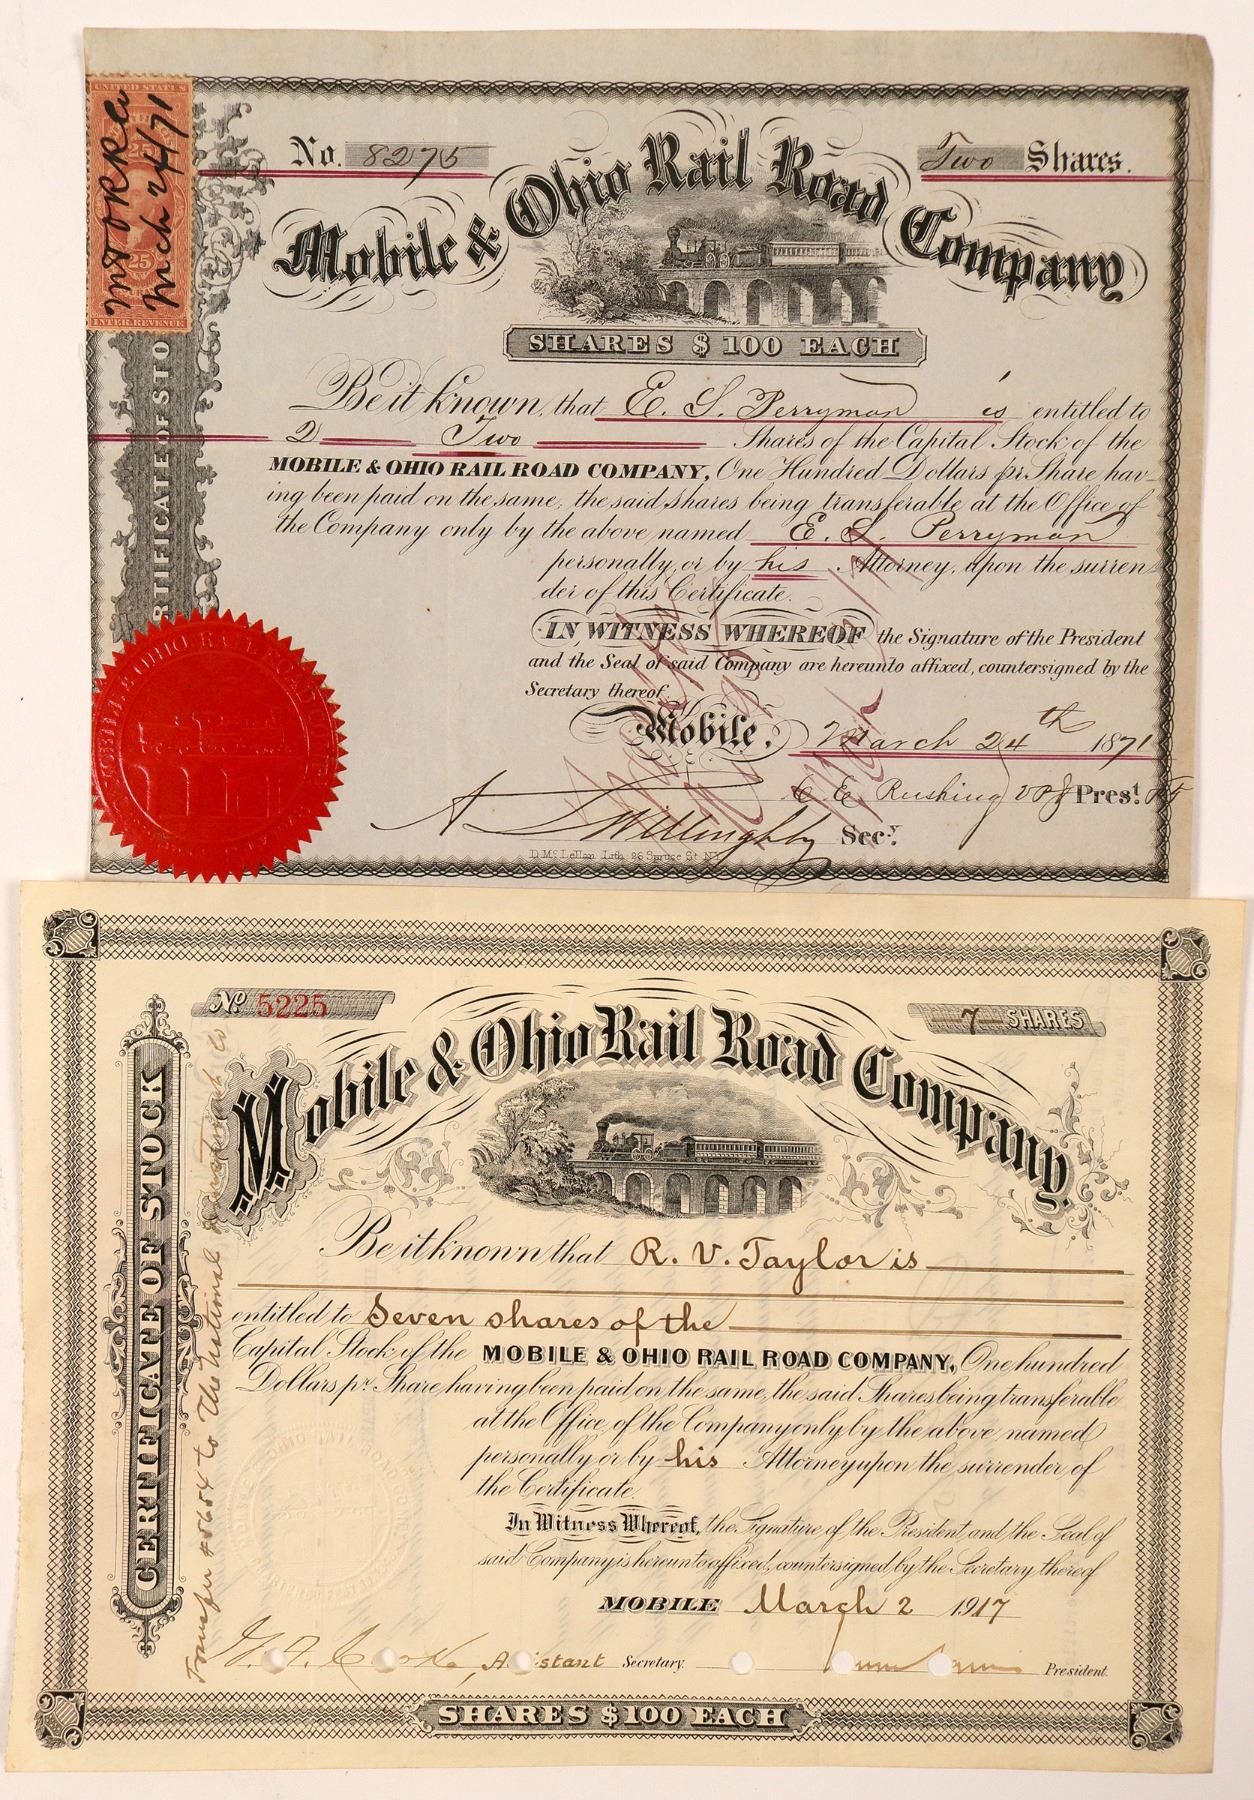 UNITED STATES
25
25
INTER. REVENUE
M & O RR Co
Mch 24/71
No. 8275
Two Shares.
Mobile & Ohio Rail Road Company
SHARES $100 EACH
Be it known, that E. S. Perryman is entitled to
2 Two Shares of the Capital Stock of the
MOBILE & OHIO RAIL ROAD COMPANY, One Hundred Dollars pr Share hav-
ing been paid on the same, the said shares being transferable at the Office of
the Company only by the above named E. S. Perryman
personally, or by his Attorney, upon the surren-
der of this Certificate.
IN WITNESS WHEREOF the Signature of the President
and the Seal of said Company are hereunto affixed, countersigned by the
Secretary thereof.
Mobile, March 24th 1871
C E Rushing Prest.
Willoughby Secy.
D. McLellan Lith. 26 Spruce St. N.Y.
RTIFICATE OF STO
No 5225
7 SHARES
Mobile & Ohio Rail Road Company.
CERTIFICATE OF STOCK
Transfer to The National
Be it known that R. V. Taylor is
entitled to Seven shares of the
Capital Stock of the MOBILE & OHIO RAIL ROAD COMPANY, One hundred
Dollars pr. Share, having been paid on the same, the said Shares being transferable
at the Office of the Company only by the above named
personally or by his Attorney upon the surrender of
the Certificate.
In Witness Whereof, the Signature of the President and the Seal of
said Company is hereunto affixed, countersigned by the Secretary thereof
MOBILE March 2 1917
Assistant Secretary.
President.
SHARES $100 EACH